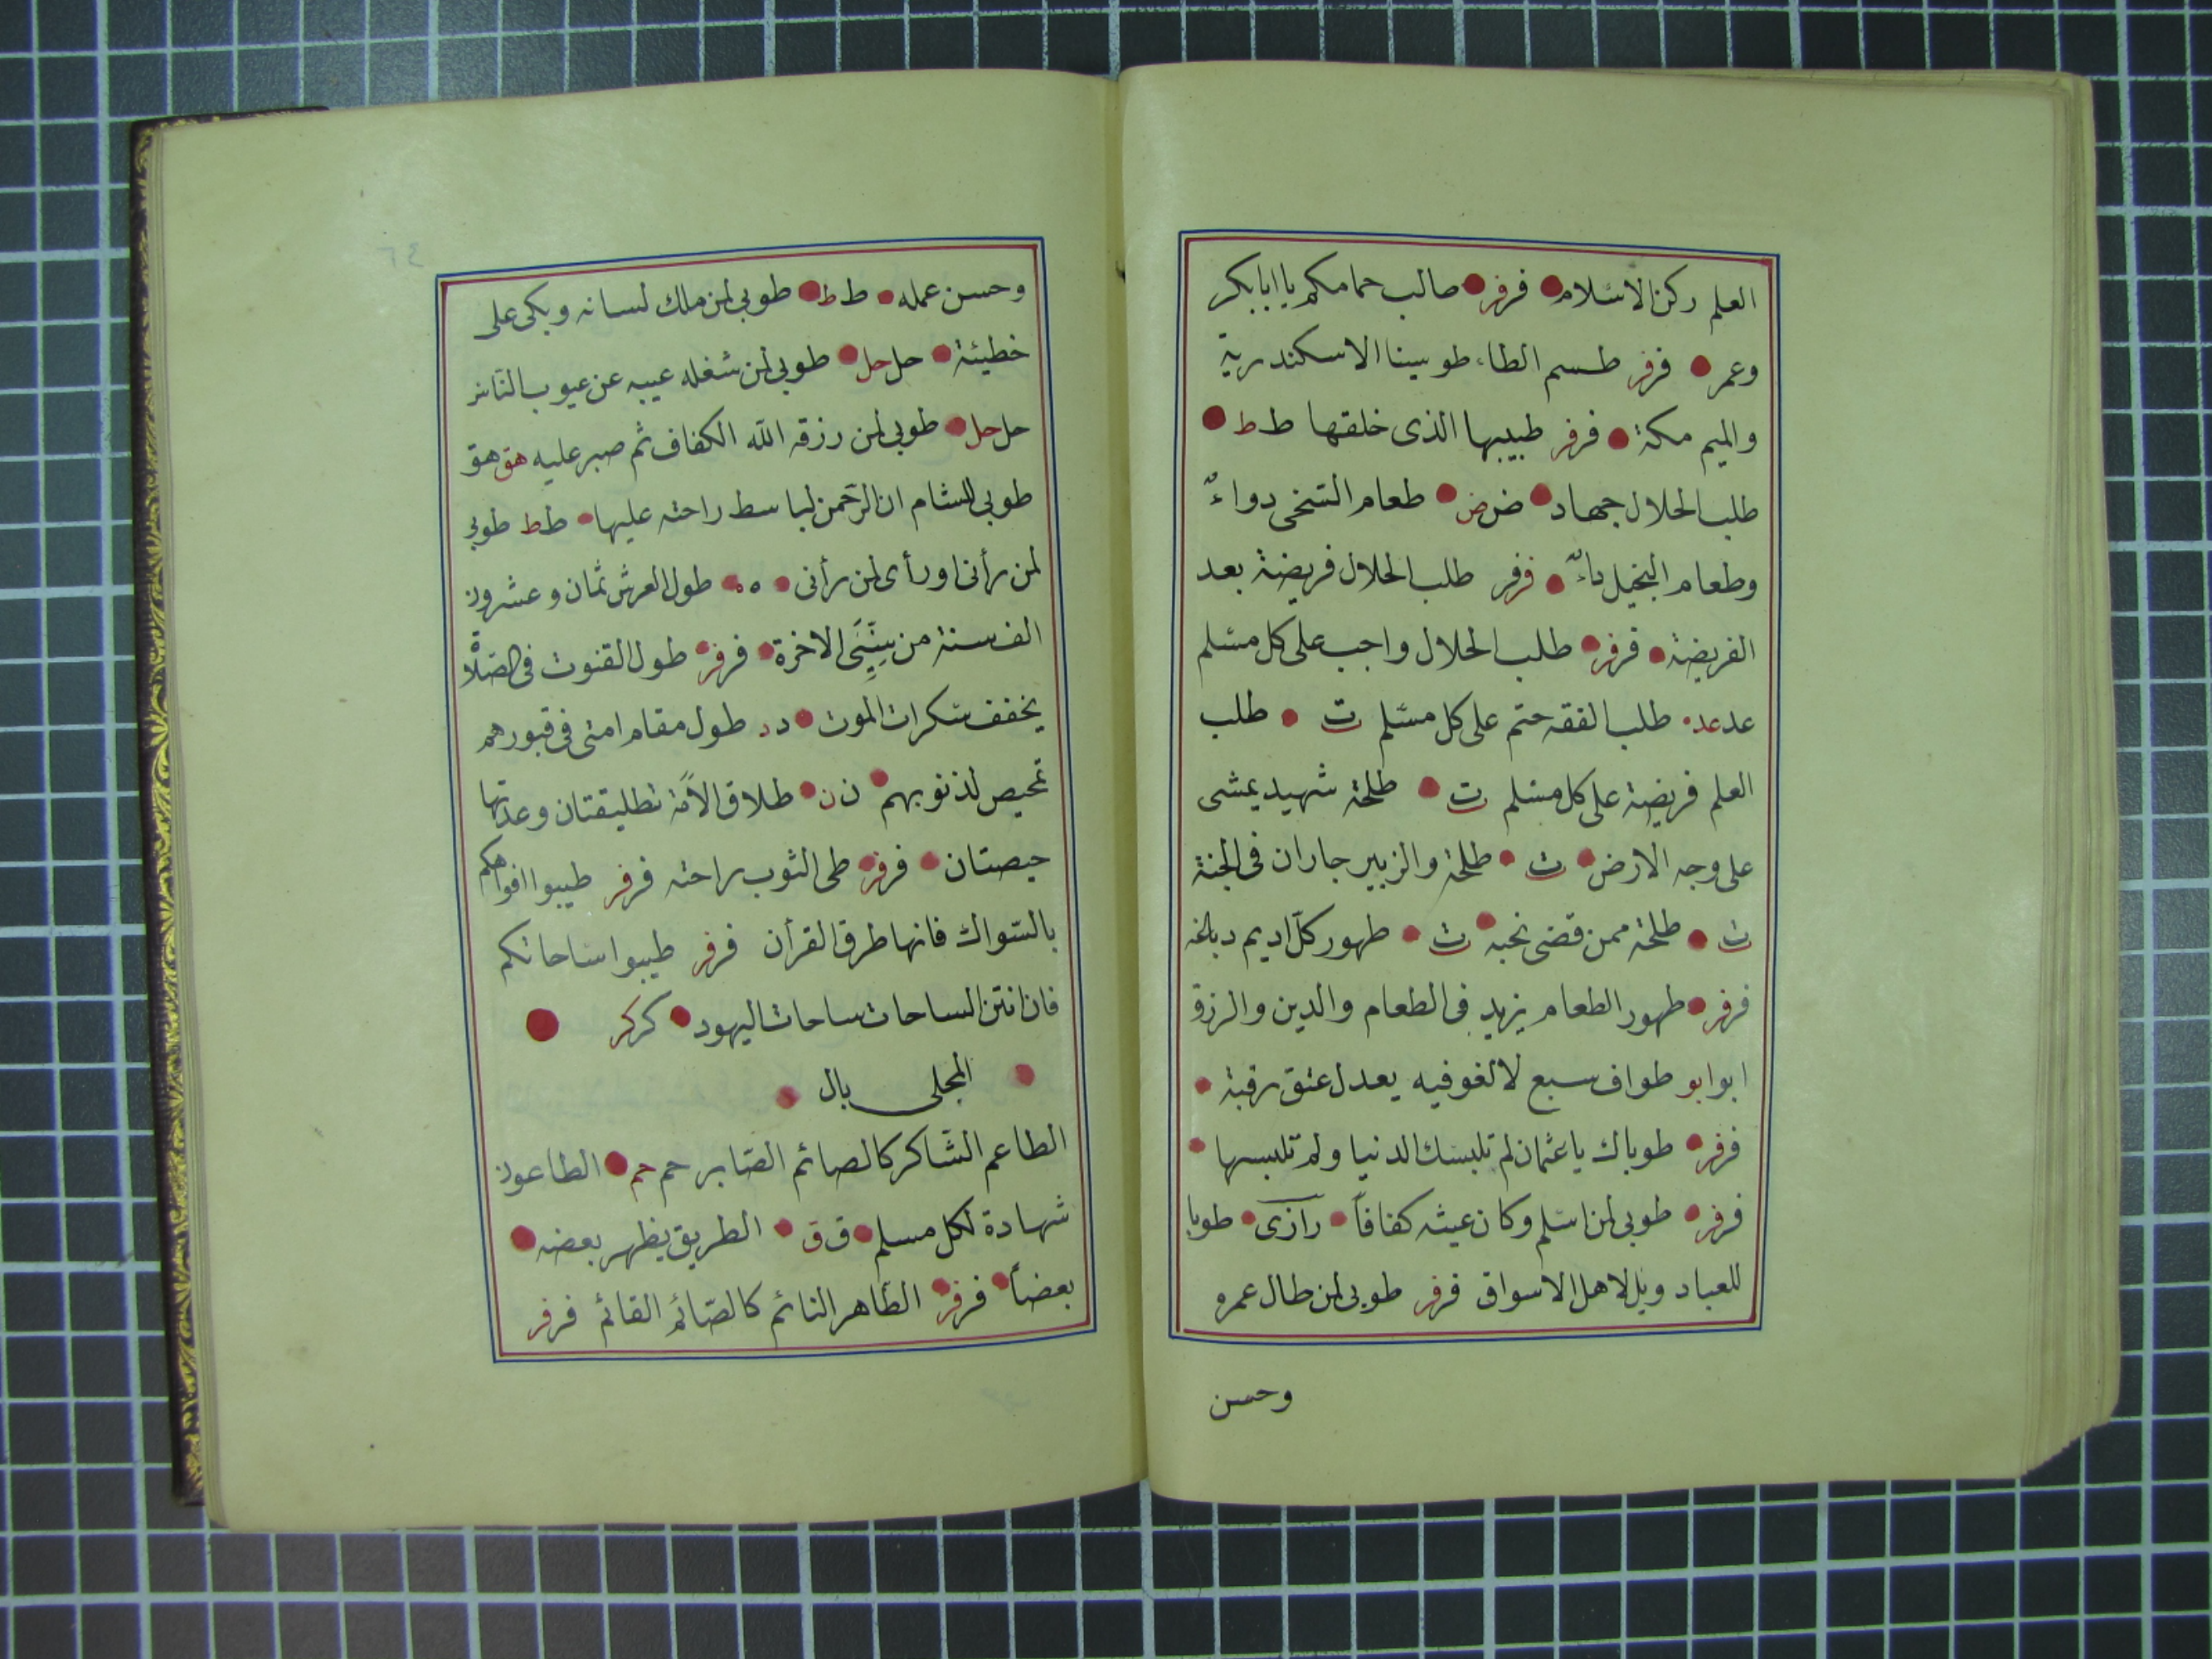 العلم ركن الاسلام فرفر صالب حمامكم يا ابابكر
وعمر فرفر طسم الطاء طوسينا الاسكندرية
والميم مكة فرفر طبيبها الذى خلقها ط ط
طلب الحلال جهاد ض ض طعام السّخى دواءٌ
وطعام البخيل داءٌ فرفر طلب الحلال فريضة بعد
الفريضة فرفر طلب الحلال واجب على كل مسّلم
عد عد طلب الفقه حتم على كل مسّلم ت طلب
العلم فريضة على كل مسّلم ت طلحة شهيد يمشى
على وجه الارض ت طلحة والزبير جاران فى الجنة
ت طلحة ممن قضى نحبه ت طهور كلّ اديم دباغه
فرفر طهور الطعام يزيد فى الطعام والدين والرزق
ابو ابو طواف سبع لا لغو فيه يعدل عنق رقبة
فرفر طوباك يا عثمان لم تلبسك الدنيا ولم تلبسها
فرفر طوبى لمن اسّلم وكان عيشه كفافاً رازى طوبا
للعباد ويل لاهل الاسواق فرفر طوبى لمن طال عمره
وحسن
٦٤
وحسن عمله ط ط طوبى لمن ملك لسانه وبكى على
خطيئة حل حل طوبى لمن شغله عيبه عن عيوب النّاس
حل حل طوبى لمن رزقه الله الكفاف ثم صبر عليه هق هق
طوبى للشام ان الرّحمن لباسط راحته عليها ط ط طوبى
لمن رأنى او رأى لمن رأنى ه ه طول العرش ثمان وعشرون
الف سنة من سِنِّىَ الاخرة فرفر طول القنوت فى الصّلاة
يخفف سّكرات الموت د د طول مقام امتى فى قبورهم
تمحيص لذنوبهم ن ن طلاق الأمة تطليقتان وعدتها
حيصتان فرفر طى الثوب راحته فرفر طيبوا افواهكم
بالسّواك فانها طرق القرأن فرفر طيبوا ساحاتكم
فان انتن الساحات ساحات اليهود كر كر
المحلى بال
الطاعم الشّاكر كالصائم الصّابر حم حم الطاعون
شهادة لكل مسلم ق ق الطريق يظهر بعضه
بعضاً فرفر الطّاهر النائم كالصّائم القائم فرفر